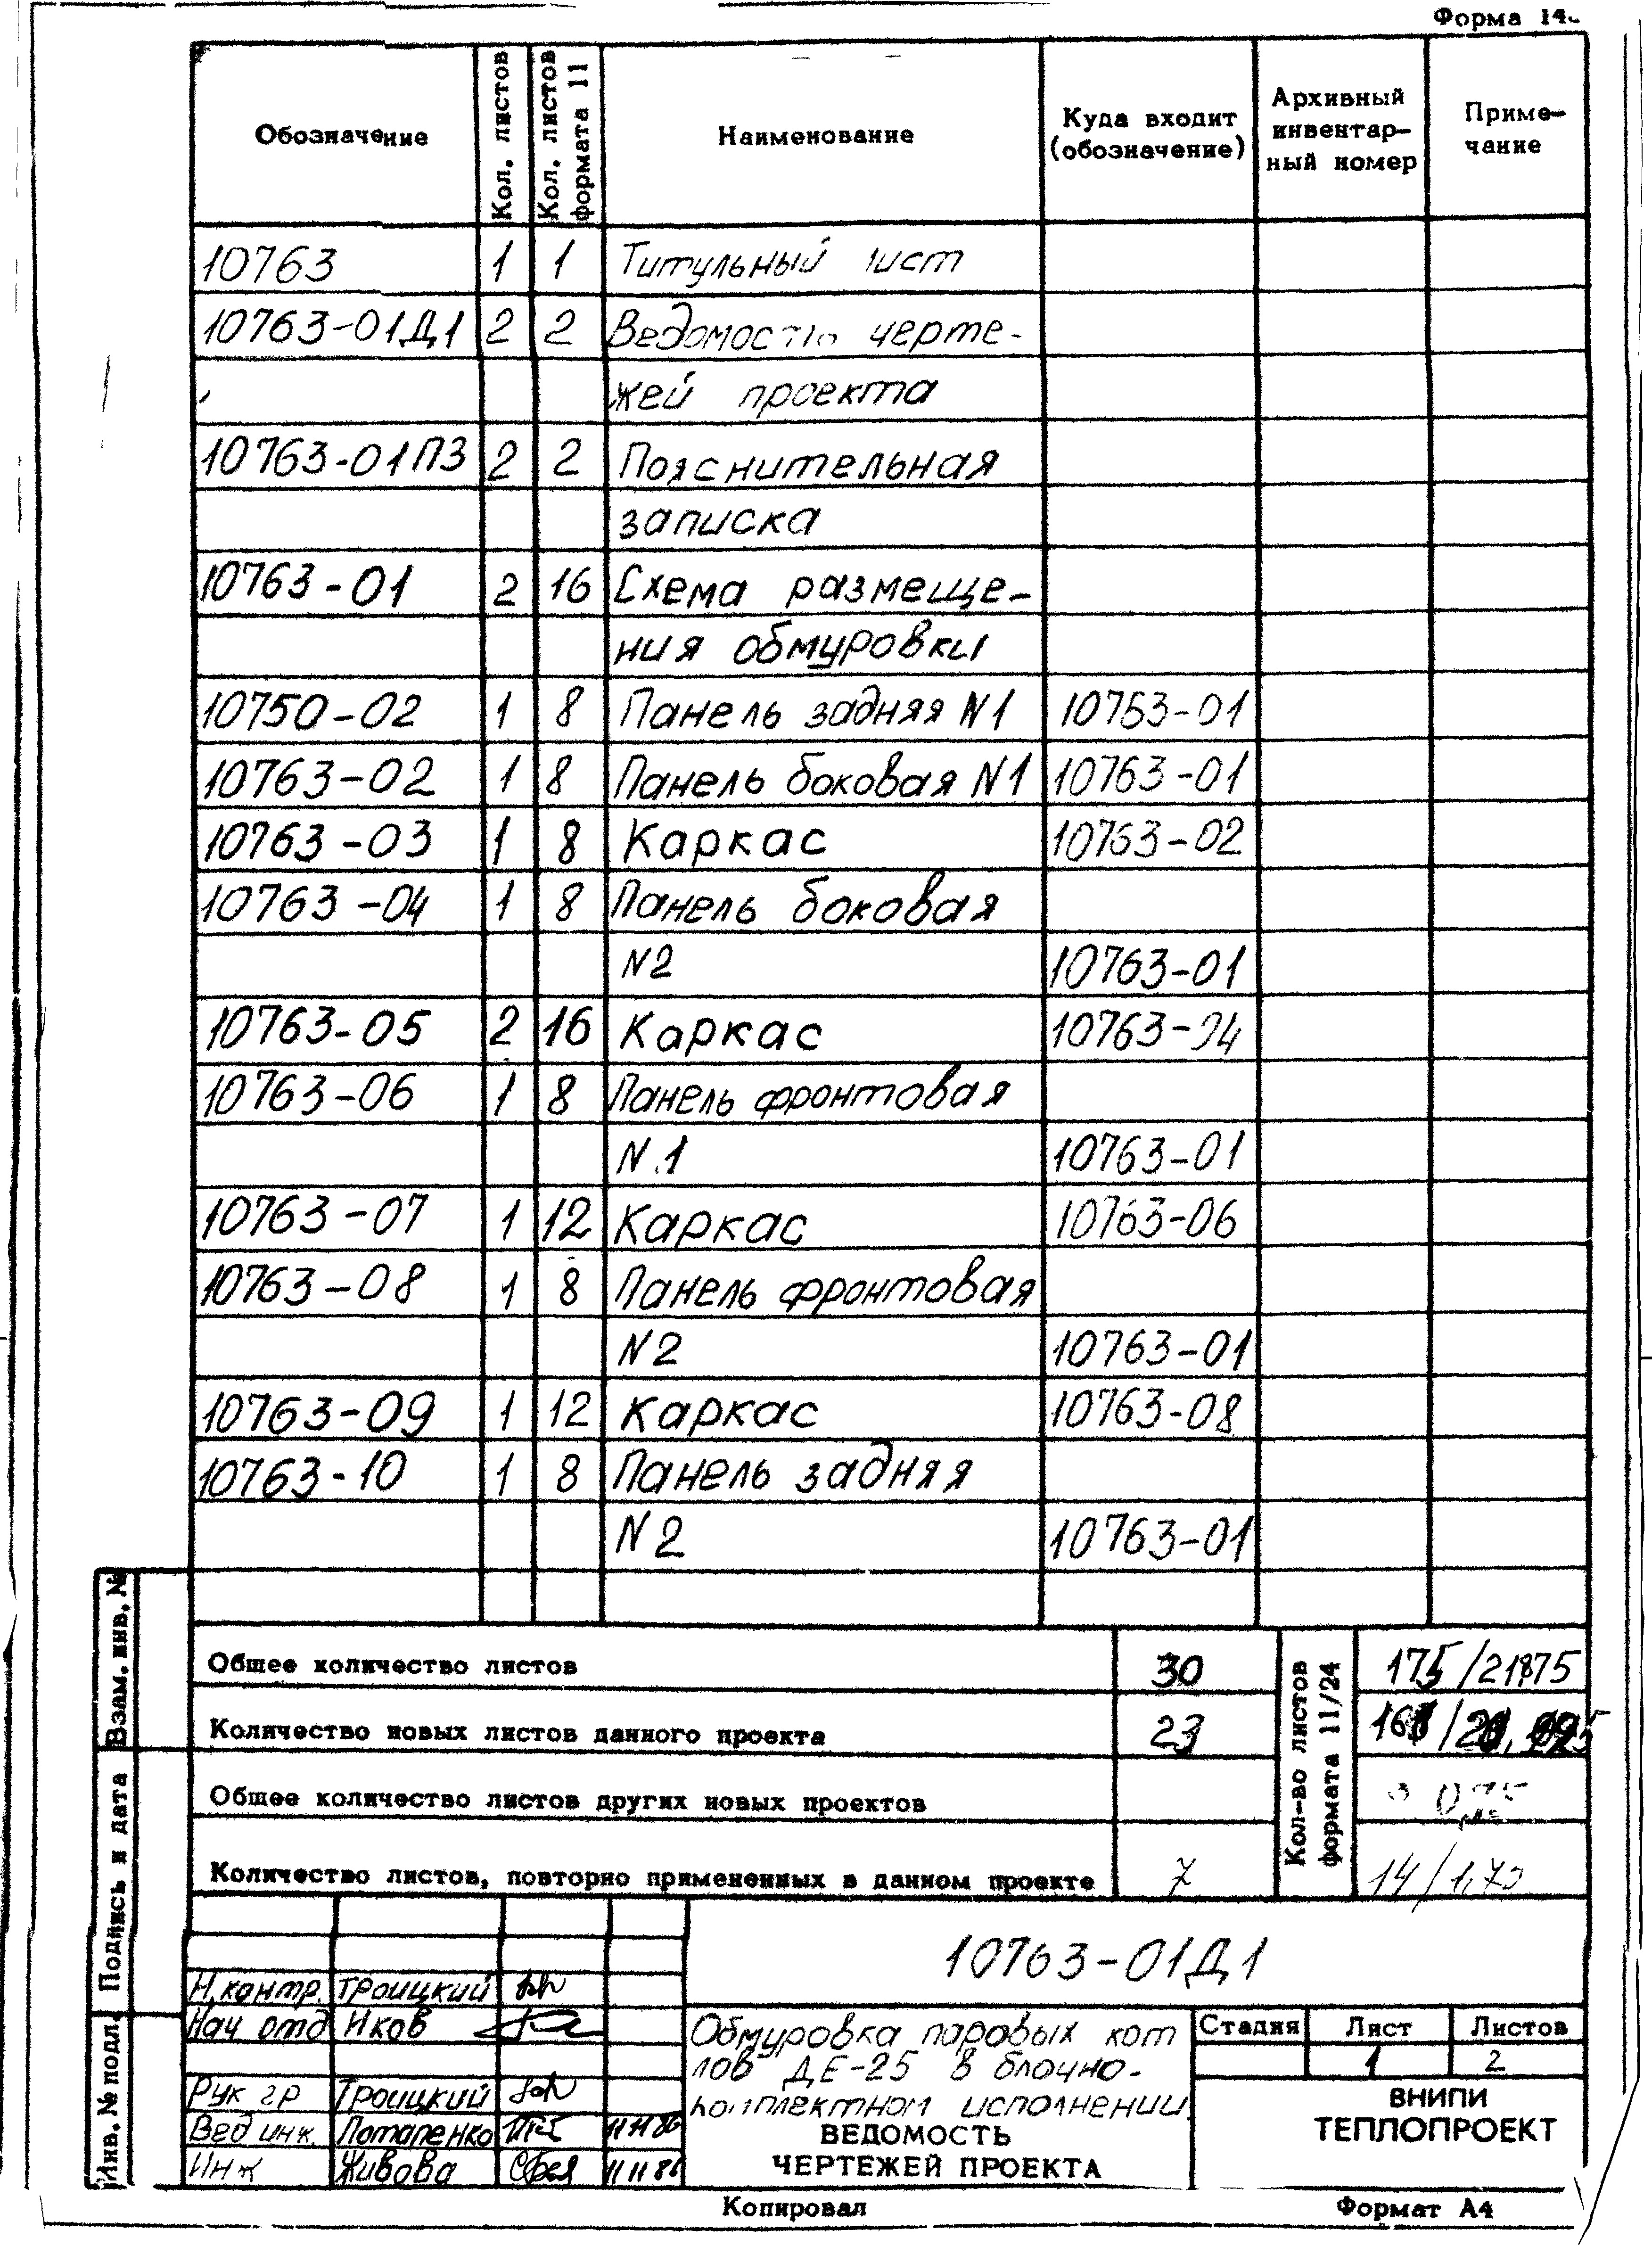 Форма 14
Обозначение
Кол. листов
Кол. листов формата 11
Наименование
Куда входит (обозначение)
Архивный инвентар-ный номер
Приме-чание
10763 1 1 Титульный лист
10763-01Д1 2 2 Ведомость черте-
жей проекта
10763-01ПЗ 2 2 Пояснительная
записка
10763-01 2 16 Схема размеще-
ния обмуровки
10750-02 1 8 Панель задняя N1 10763-01
10763-02 1 8 Панель боковая N1 10763-01
10763-03 1 8 Каркас 10763-02
10763-04 1 8 Панель боковая
N2 10763-01
10763-05 2 16 Каркас 10763-04
10763-06 1 8 Панель фронтовая
N.1 10763-01
10763-07 1 12 Каркас 10763-06
10763-08 1 8 Панель фронтовая
N2 10763-01
10763-09 1 12 Каркас 10763-08
10763-10 1 8 Панель задняя
N2 10763-01
Взам. инв. №
Подпись и дата
Инв. № подл.
Кол-во листов формата 11/24
Общее количество листов 30 175/21,875
Количество новых листов данного проекта 23
Общее количество листов других новых проектов
Количество листов, повторно примененных в данном проекте 7
10763-01Д1
Н.контр. Троицкий
Нач отд Иков
Рук гр Троицкий
Вед инж. Потапенко 11 11 86
Инж Живова 11 11 86
Обмуровка паровых кот
лов ДЕ-25 в блочно-
комплектном исполнении
ВЕДОМОСТЬ
ЧЕРТЕЖЕЙ ПРОЕКТА
Стадия Лист Листов
1 2
ВНИПИ
ТЕПЛОПРОЕКТ
Копировал Формат А4